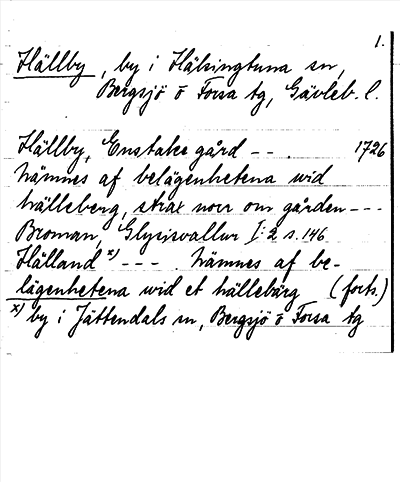 1.
Hällby, by i Hälsingtuna sn,
Bergsjö o Forsa tg, Gävleb. l.
Hällby, Enstake gård -- . 1726
nämnes af belägenhetena wid
hälleberg, strax norr om gården ---
Broman, Glysisvallur I:2 s. 146
Hålland x) --- . nämnes af be-
lägenhetena wid et hällebärg (forts.)
x) by i Jättendals sn, Bergsjö o Forsa tg